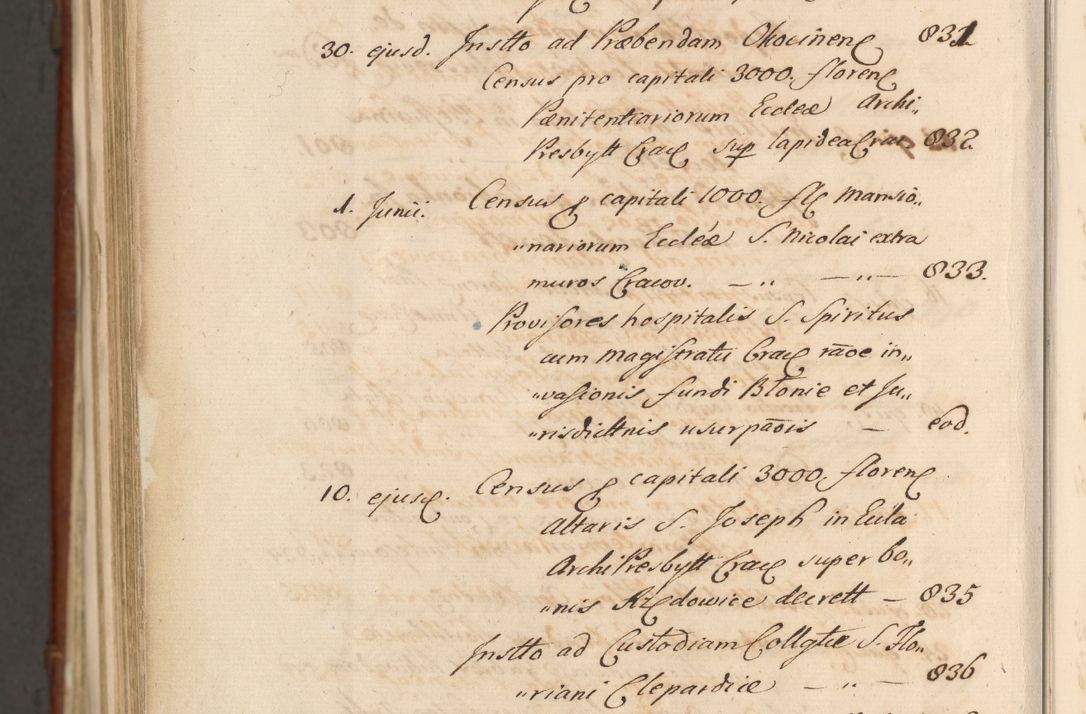 30. ejusd. Instto ad Præbendam Chocinenę 831
Census pro capitali 3000. florenę
Pænitentiariorum Eccleæ Archi„
Presbytt Cracę sup lapidea Crac 832.
1. Junii. Census ꝑ capitali 1000. flę Mansio„
„nariorum Eccleæ S. Nicolai extra
muros Cracov. — „ — „ — 833.
Provisores hospitalis S. Spiritus
cum Magistratu Cracę rãoe in„
„vasionis fundi Błonie et Ju„
„risdicttnis usurpãois — eod.
10. ejusę. Census ꝑ capitali 3000. florenę
Altaris S. Joseph in Eccla
ArchiPresbytt Cracę super bo„
„nis Rzędowice decrett — 835
Instto ad Custodiam Collgtæ S. Flo„
„riani Clepardiæ — „ — 836